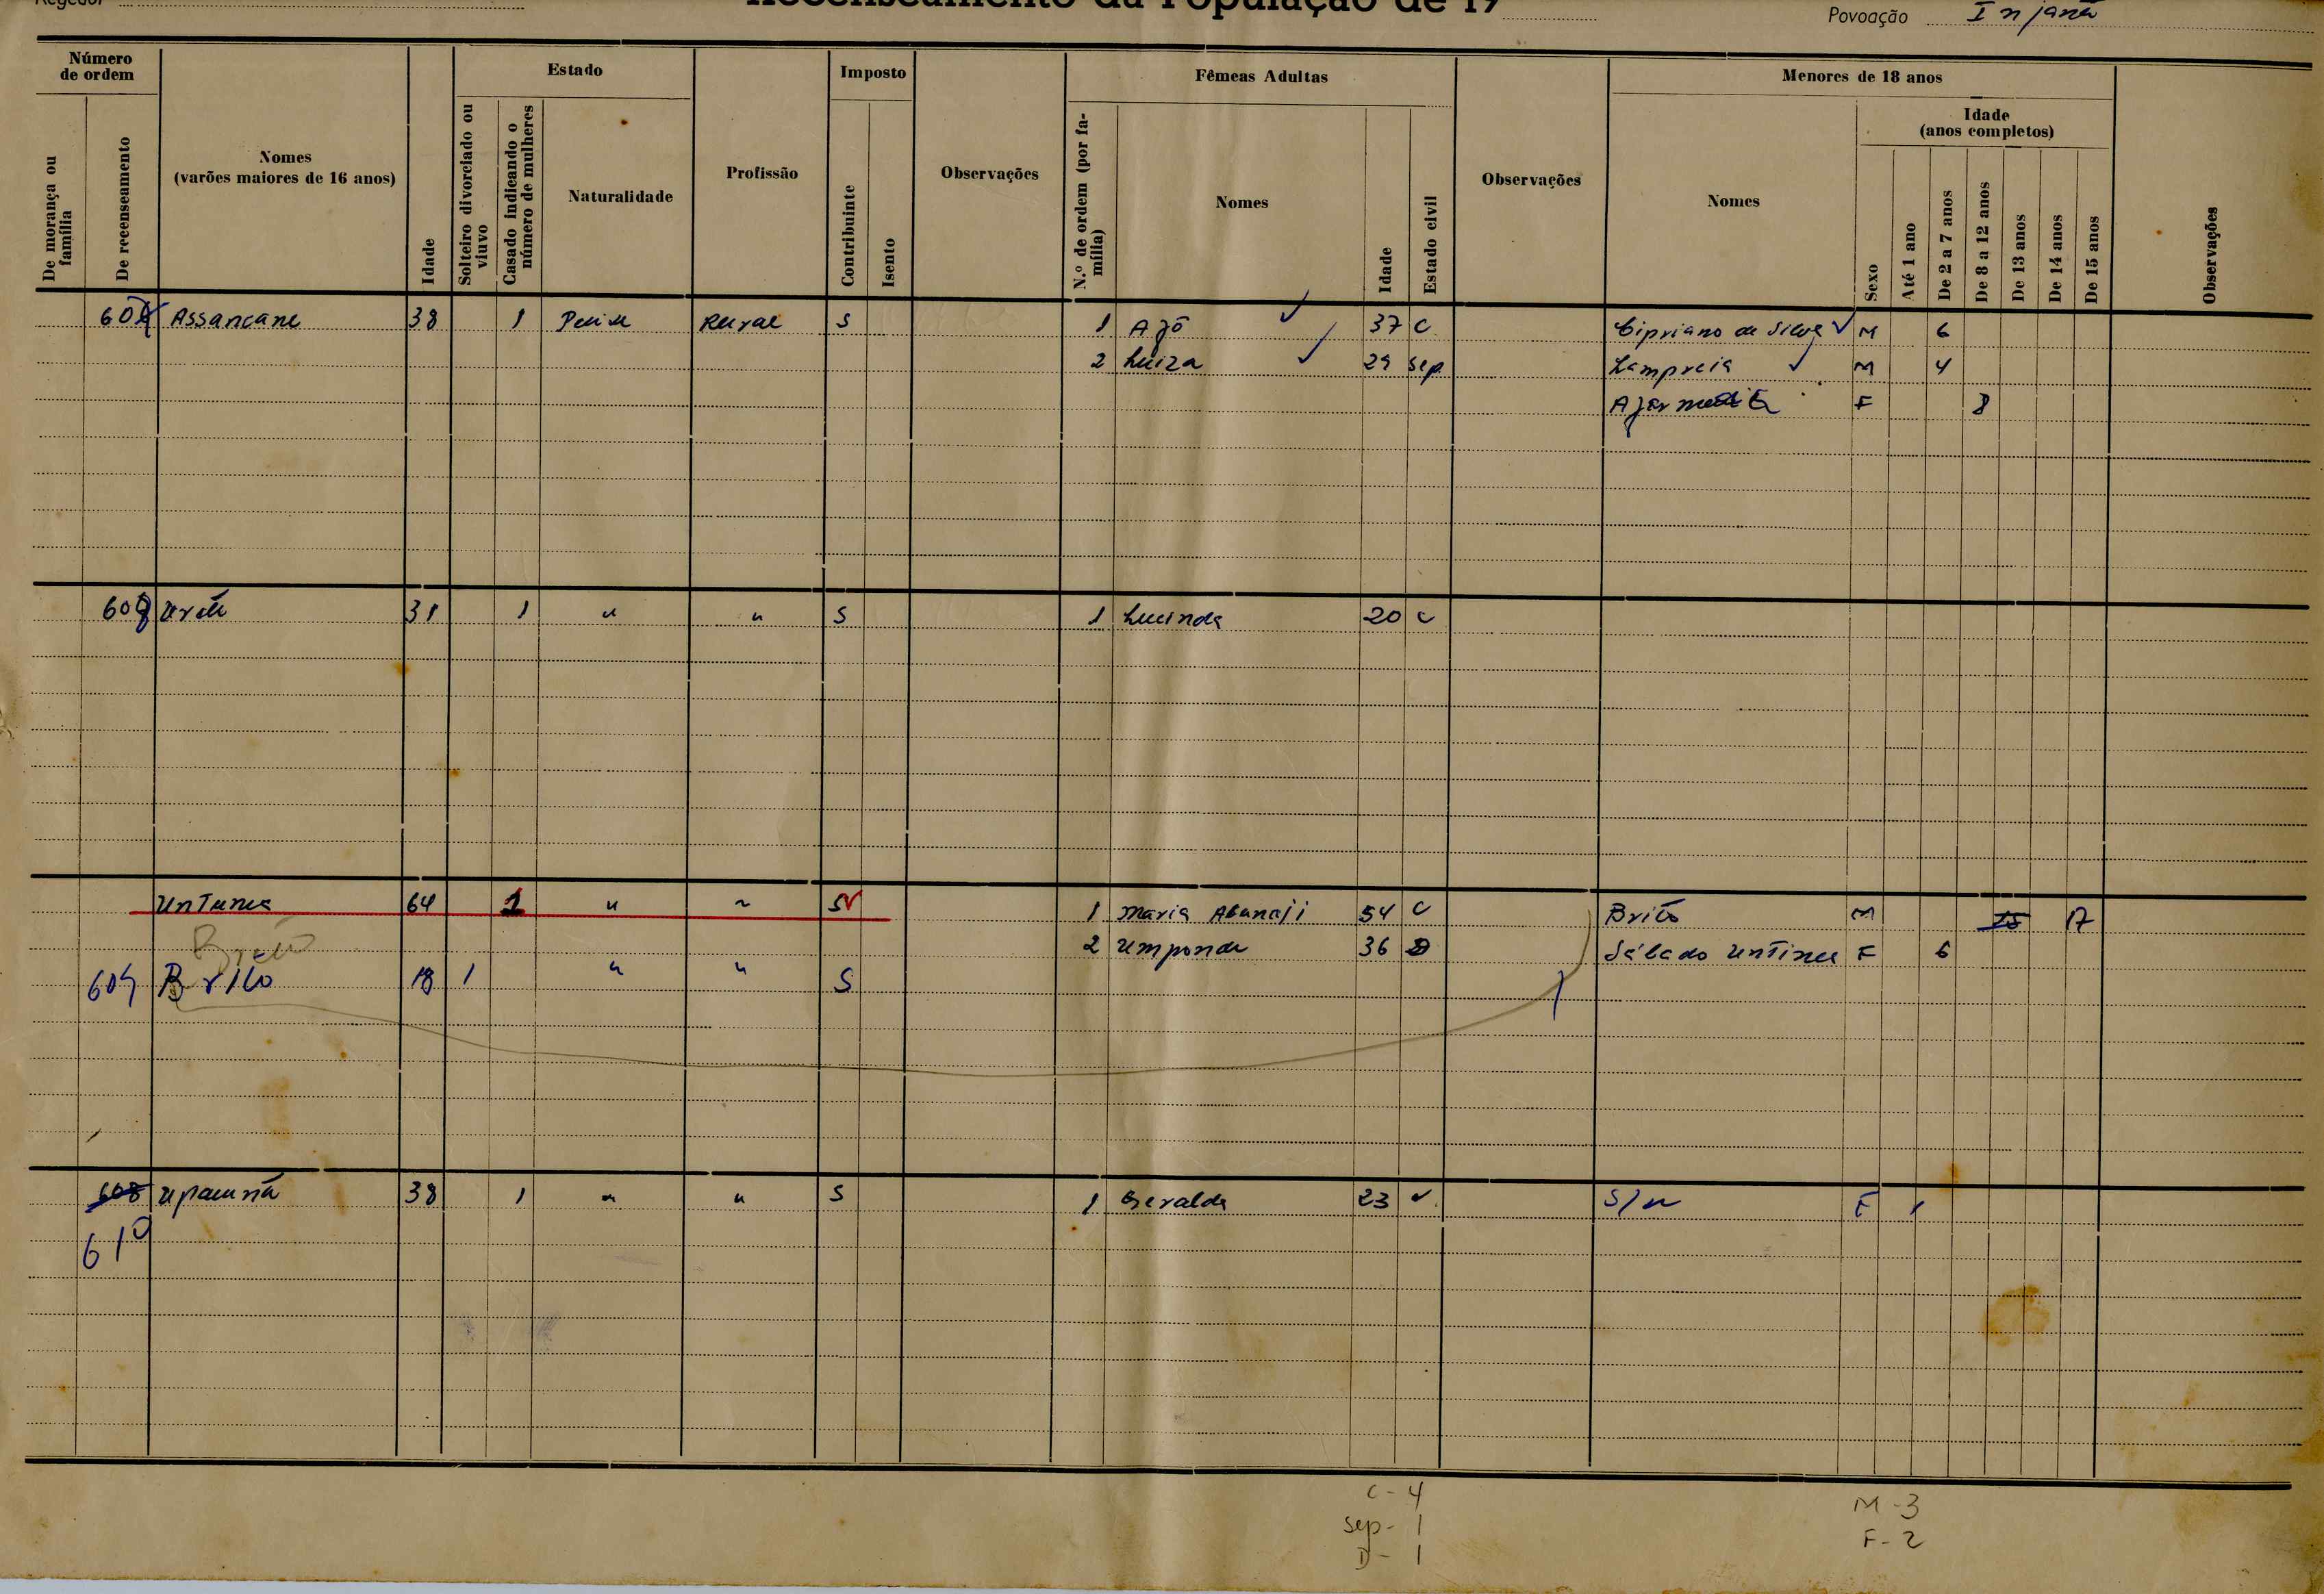 Regedor
Recenseamento da População de 19
Povoação Injanã
Número de ordem
De morança ou família
De recenseamento
Nomes (varões maiores de 16 anos)
Idade
Estado
Solteiro divorciado ou viuvo
Casado indicando o número de mulheres
Naturalidade
Profissão
Imposto
Contribuinte
Isento
Observações
Fêmeas Adultas
N.º de ordem (por família)
Nomes
Idade
Estado civil
Observações
Menores de 18 anos
Nomes
Sexo
Idade (anos completos)
Até 1 ano
De 2 a 7 anos
De 8 a 12 anos
De 13 anos
De 14 anos
De 15 anos
Observações
Assancane 38 1 Rural S 1 Ajô 37 C Cipriano da Silva M 6
2 Luiza 29 Sep Lampreia M 4
F 8
31 1 " " S 1 Lucinda 20 C
64 1 " " S 1 Maria 54 C Brito M 15 17
2 Umponde 36 D Sábado F 6
Brito
609 Brito 18 1 " " S
608 38 1 " " S 1 Geralda 23 S/n F 1
610
C - 4
Sep - 1
D - 1
M - 3
F - 2